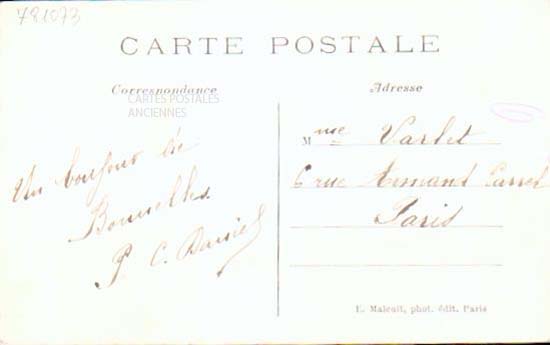 781073
CARTE POSTALE
Correspondance
CARTES POSTALES
ANCIENNES
Un bonjour de
Bonnelles
P C. Daniel
Adresse
Mme Varlet
6 rue Armand Carrel
Paris
E. Malcuit, phot. édit. Paris